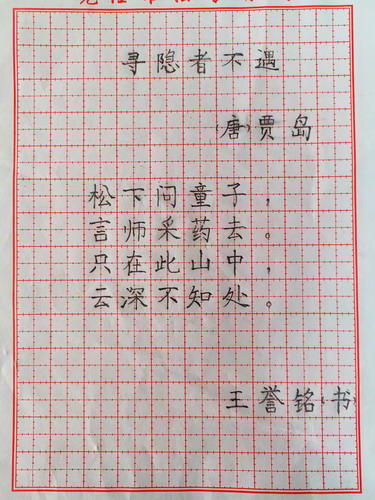 寻隐者不遇
(唐)贾岛
松下问童子，
言师采药去。
只在此山中，
云深不知处。
王誉铭(书)